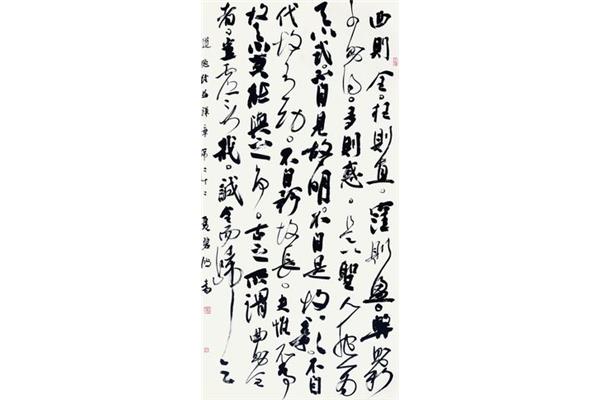 曲則全。枉則直。窪則盈。弊則新
少則得。多則惑。是以聖人抱一為
天下式。不自見故明。不自是故彰。不自
伐故有功。不自矜故長。夫惟不爭
故天下莫能與之爭。古之所謂曲則全
者。豈虛言哉。誠全而歸之
道德經 章第二十二 書